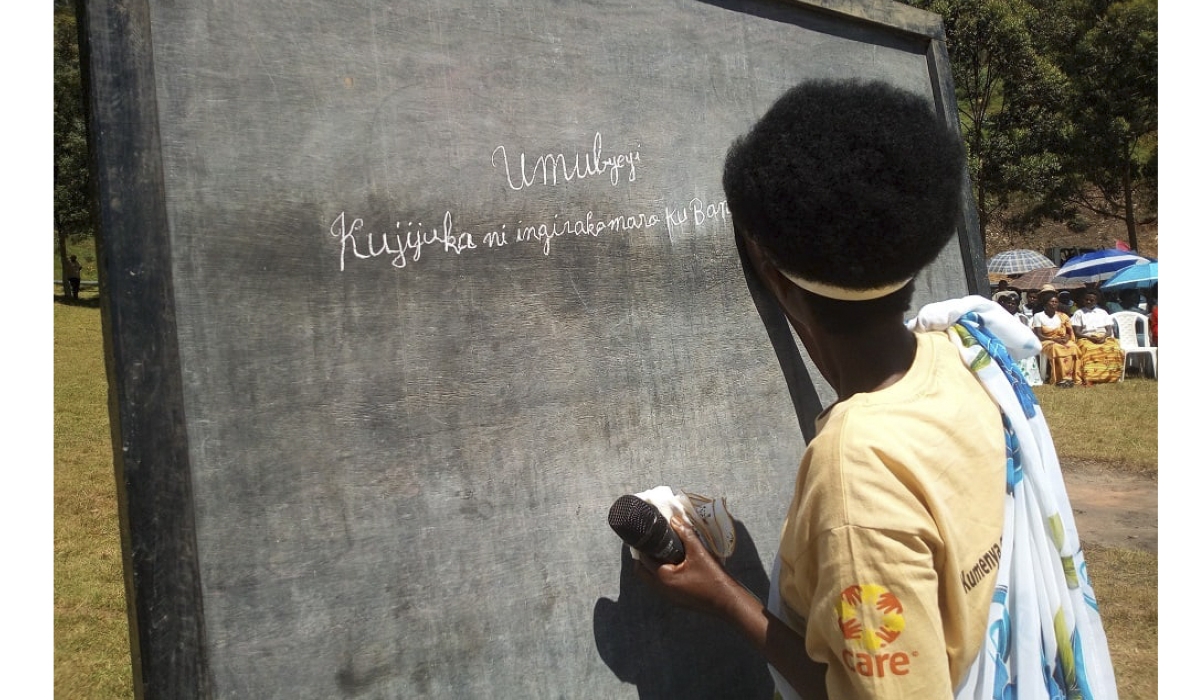 Umubyeyi
Kujijuka ni ingirakamaro ku Ban
Kumenya
care